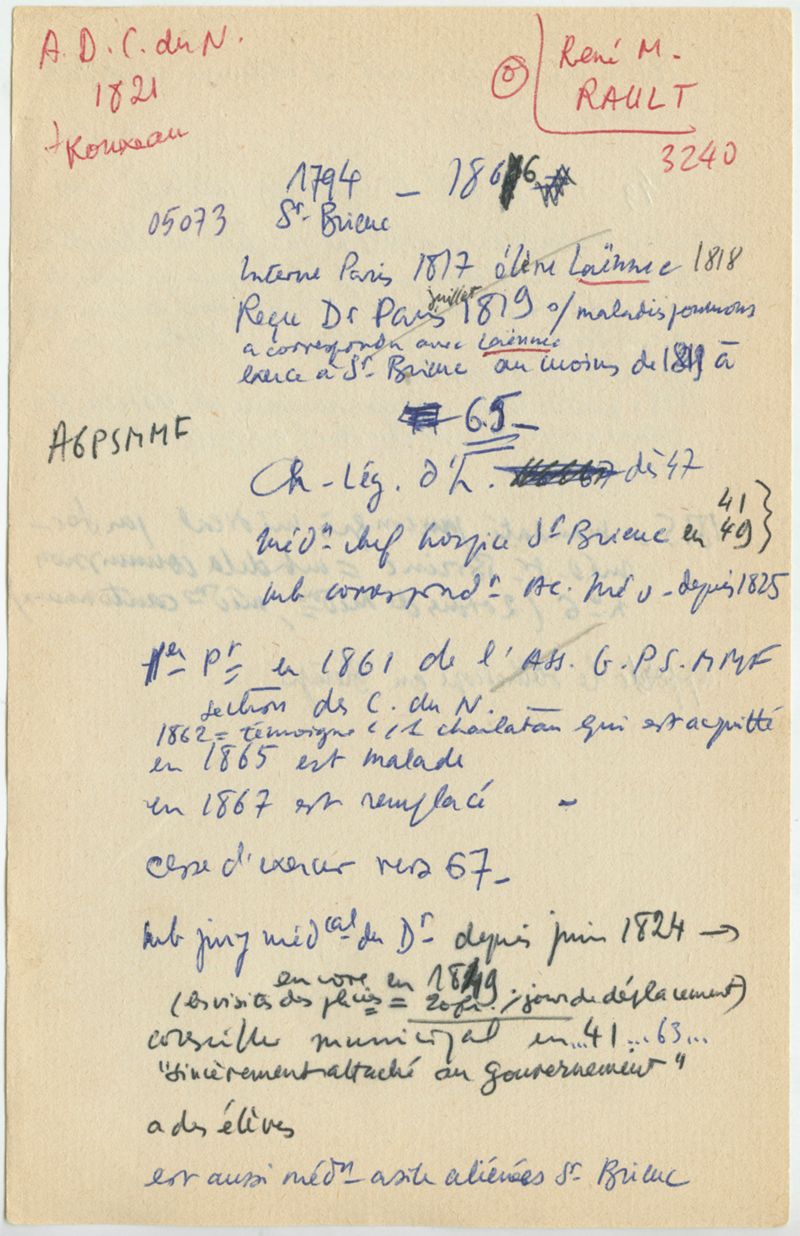 A. D. C. du N.
1821
+ Rouxeau
René M.
RAULT
3240
1794 - 1866
05073 St-Brieuc
Interne Paris 1817 élève Laënnec 1818
Reçu Dr Paris juillet 1819 s/ maladies poumons
a correspondu avec Laënnec
exerce à St-Brieuc au moins de 1819 à
65-
AGPSMMF
Ch-Lég. d'H. dès 47
41
médn chef hospice St Brieuc en 49
mb correspondt Ac. Méd - depuis 1825
1er Pt en 1861 de l'Ass. G. P.S. MMF
section des C. du N.
1862 = témoigne c/ 1 charlatan qui est acquitté
en 1865 est malade
en 1867 est remplacé -
cesse d'exercer vers 67-
mb jury médical du Dt depuis juin 1824 →
encore en 1849
(les visites des phcies = 20 fr. / jour de déplacement)
conseiller municipal en...41...63...
"sincèrement attaché au gouvernement"
a des élèves
est aussi médn asile aliénées St Brieuc